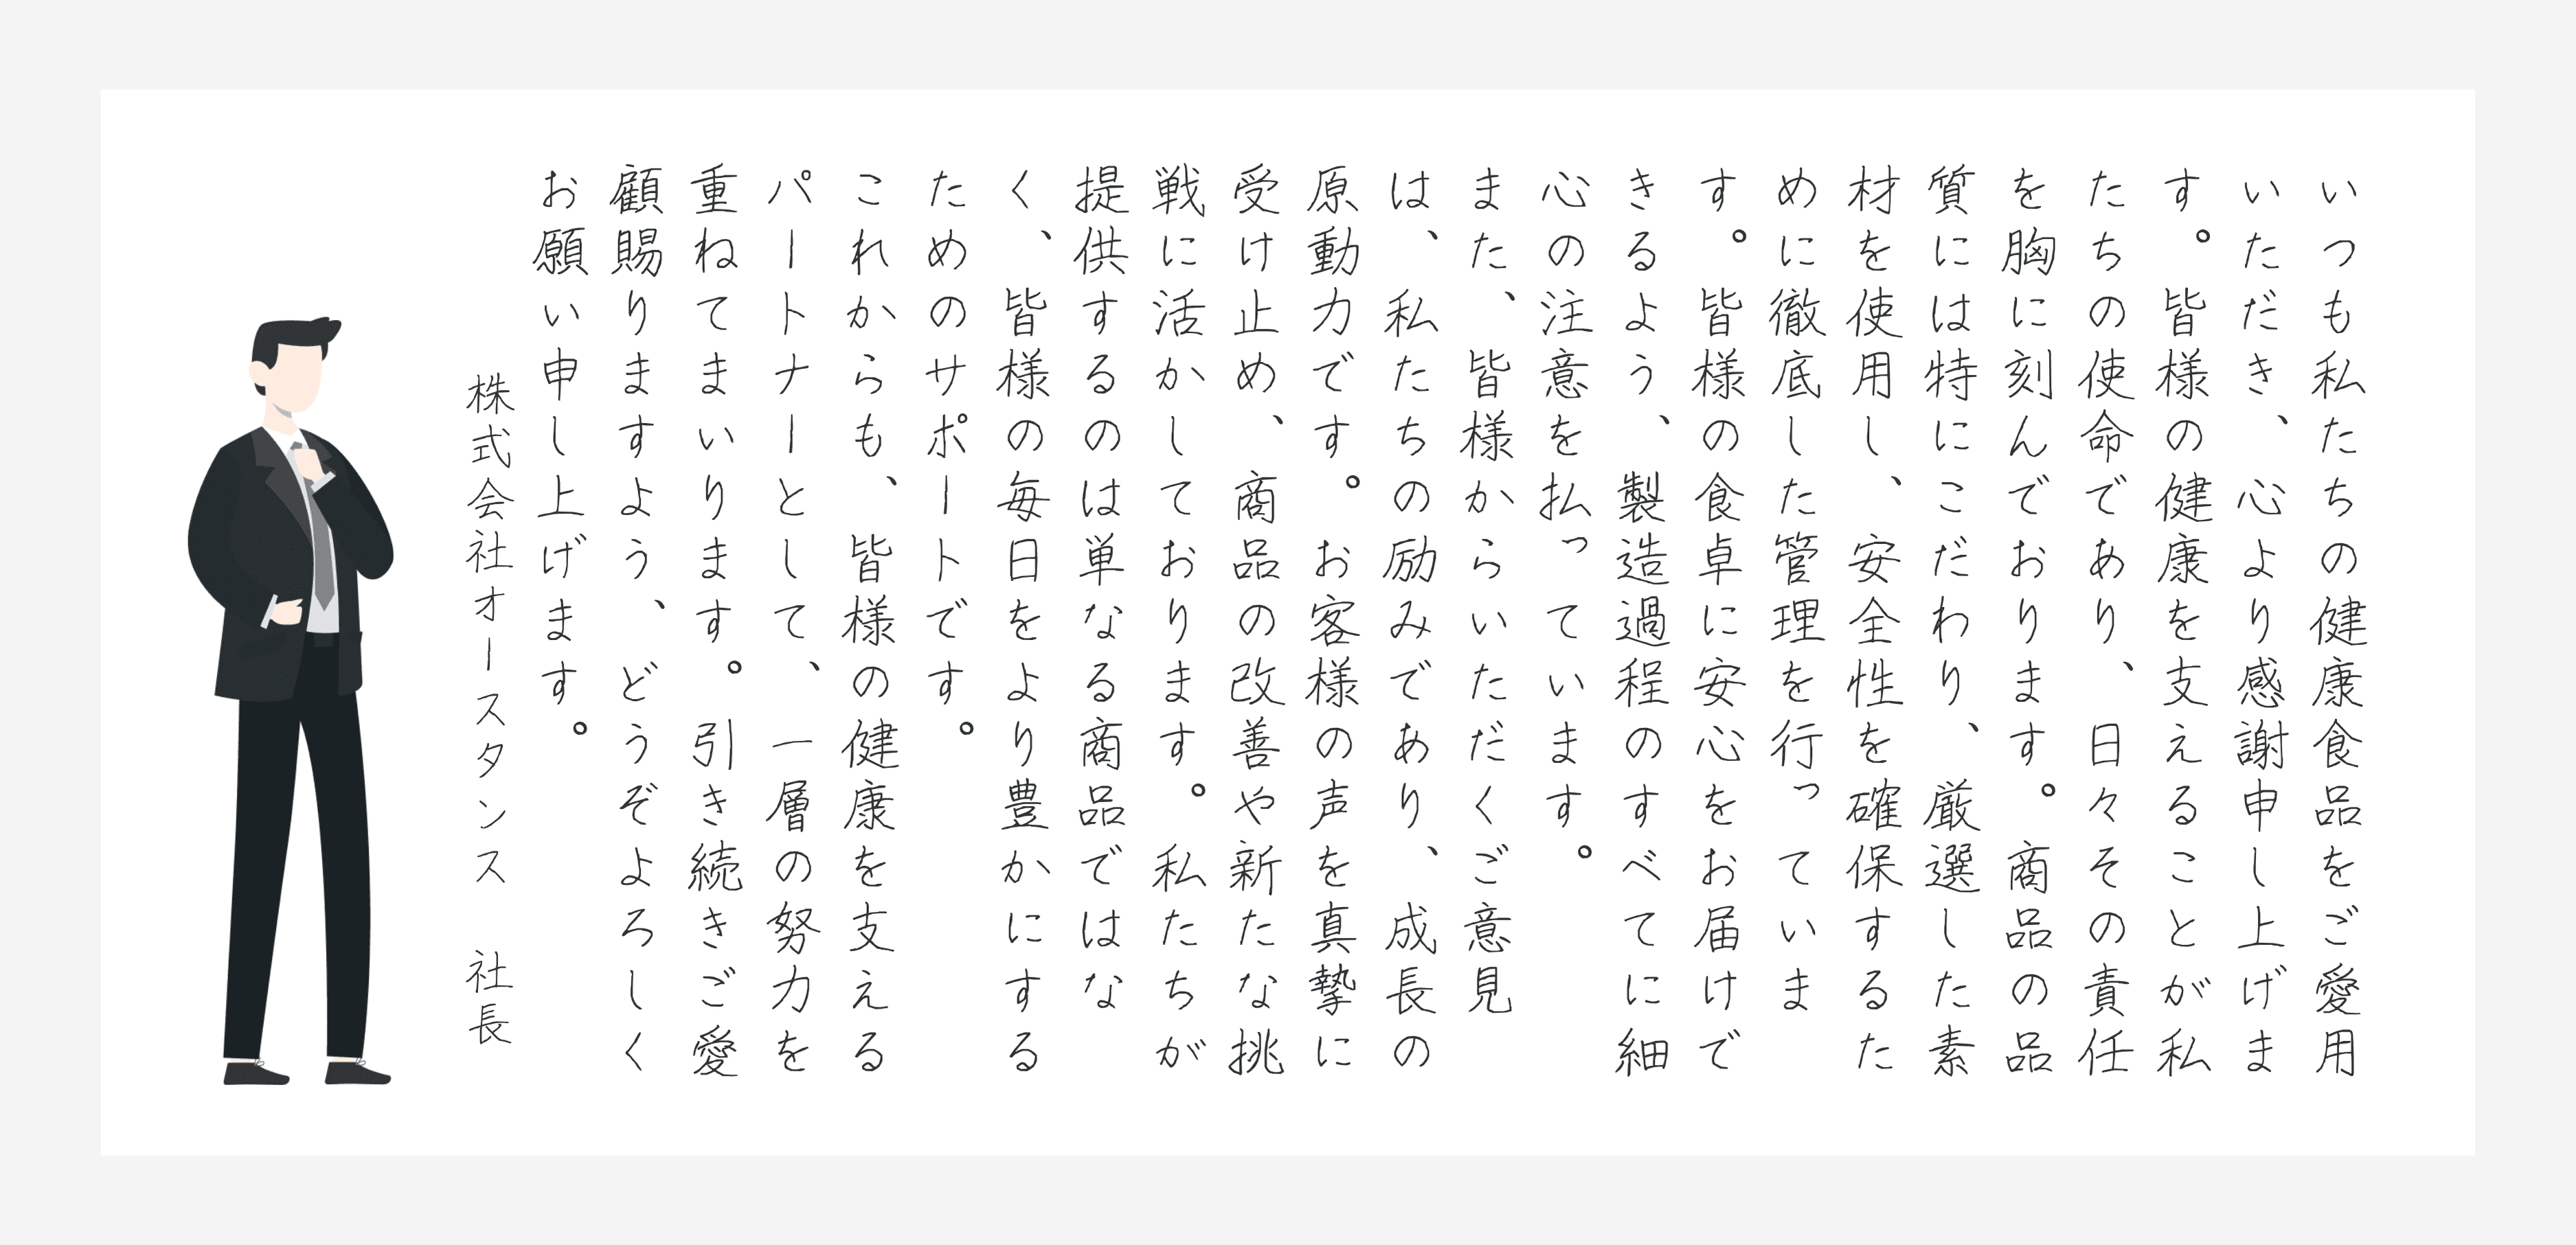 いつも私たちの健康食品をご愛用
いただき、心より感謝申し上げま
す。皆様の健康を支えることが私
たちの使命であり、日々その責任
を胸に刻んでおります。商品の品
質には特にこだわり、厳選した素
材を使用し、安全性を確保するた
めに徹底した管理を行っていま
す。皆様の食卓に安心をお届けで
きるよう、製造過程のすべてに細
心の注意を払っています。
また、皆様からいただくご意見
は、私たちの励みであり、成長の
原動力です。お客様の声を真摯に
受け止め、商品の改善や新たな挑
戦に活かしております。私たちが
提供するのは単なる商品ではな
く、皆様の毎日をより豊かにする
ためのサポートです。
これからも、皆様の健康を支える
パートナーとして、一層の努力を
重ねてまいります。引き続きご愛
顧賜りますよう、どうぞよろしく
お願い申し上げます。
株式会社オースタンス　社長